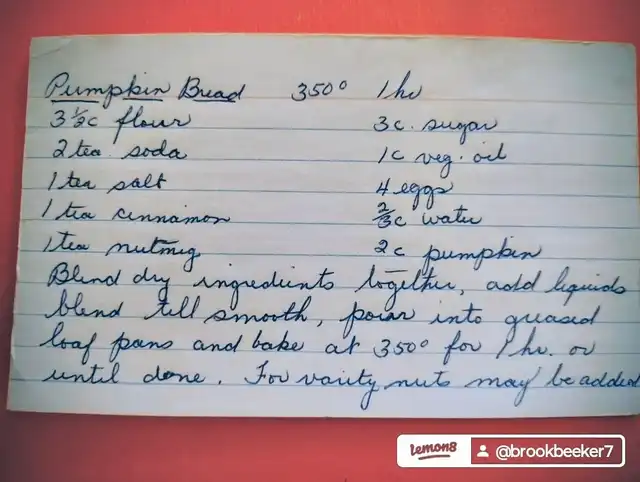 Pumpkin Bread 350° 1 hr
3 ½c flour 3c. sugar
2 tea. soda 1c veg. oil
1 tea salt 4 eggs
1 tea cinnamon ⅔c water
1 tea nutmeg 2c pumpkin
Blend dry ingredients together, add liquids
blend till smooth, pour into greased
loaf pans and bake at 350° for 1 hr. or
until done. For varity nuts may be added
lemon8 @brookbeeker7